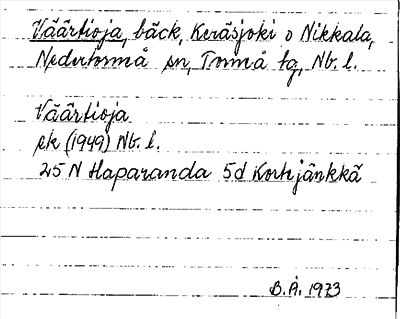 Väärtioja, bäck, Keräsjoki o Nikkala,
Nedertorneå sn, Torneå tg, Nb. l.
Väärtioja
ek (1949) Nb. l.
25 N Haparanda 5d Korhjänkkä
B.Å. 1973